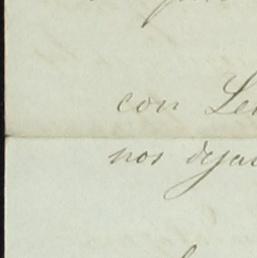 con Le
nos deja